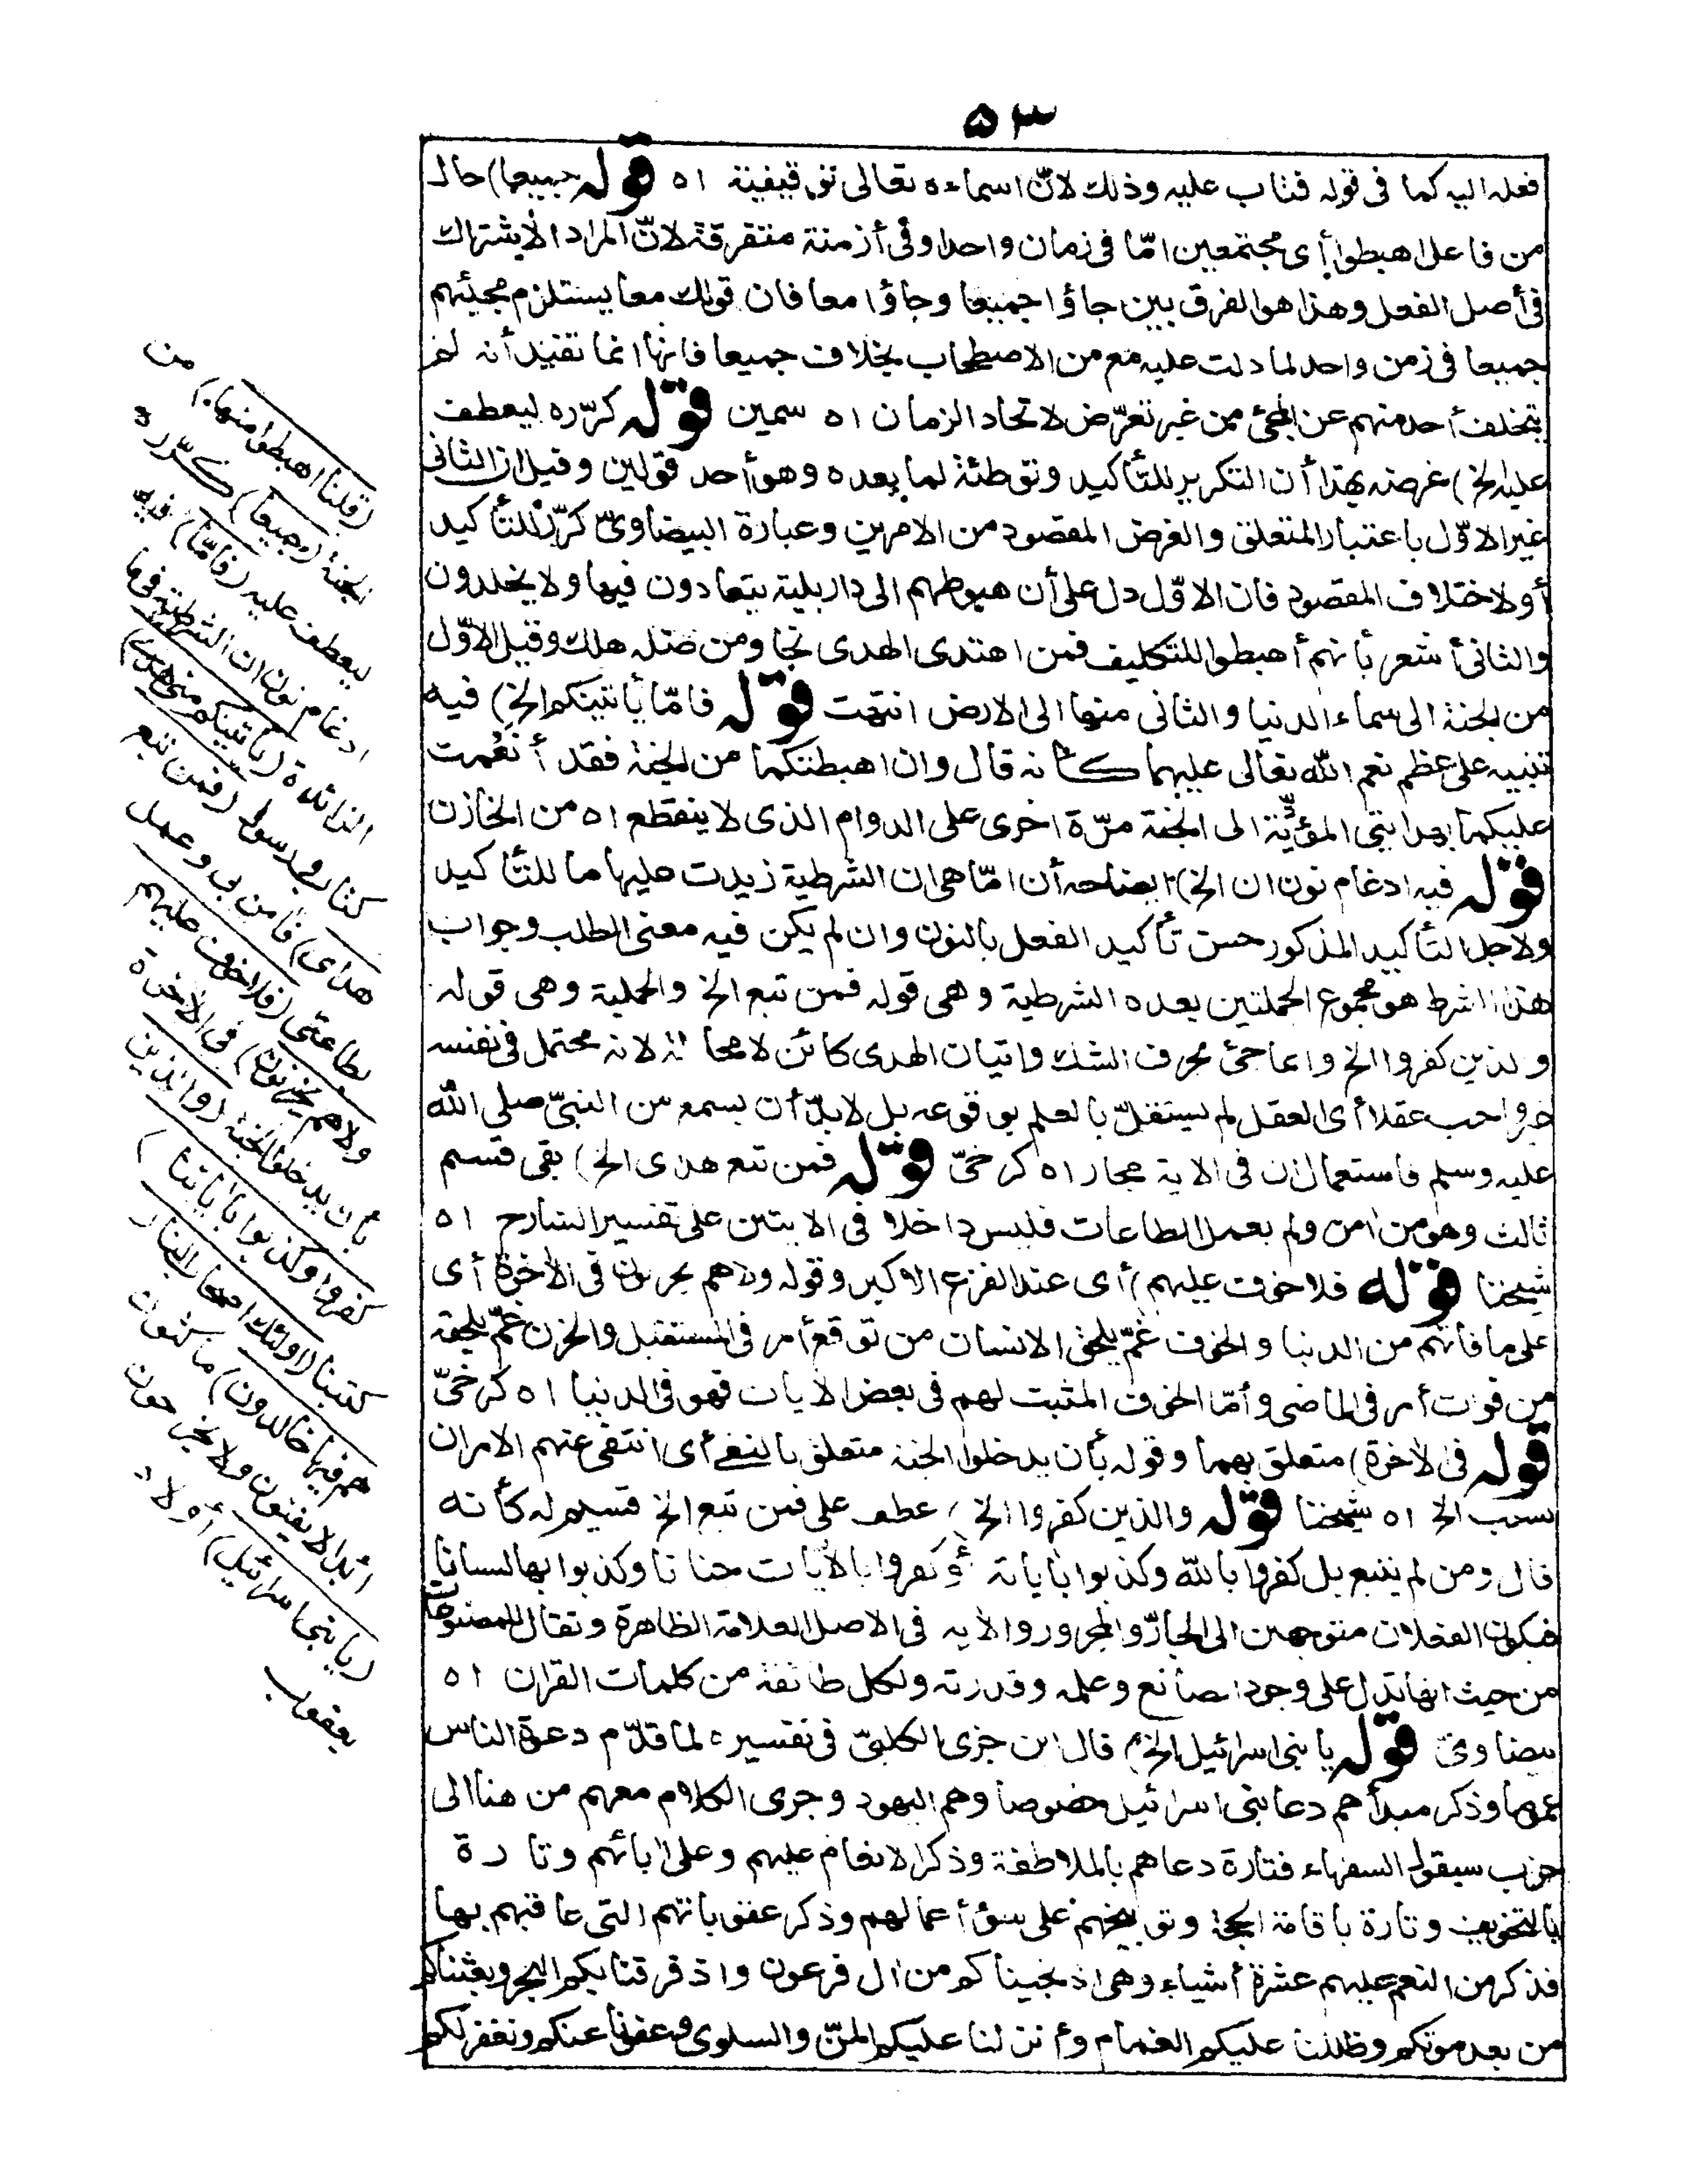 ٥٣
فعله اليه كما فى قوله فتاب عليه وذلك لانّ اسماءه تعالى توقيفية اه قوله جميعا) حال
من فاعل اهبطوا أى مجتمعين امّا فى زمان واحد او فى أزمنة متفرقة لانّ المراد الاشتراك
فى أصل الفعل وهذا هو الفرق بين جاؤا جميعا وجاؤا معا فان قولك معا يستلزم مجيئهم
جميعا فى زمن واحد لما دلت عليه مع من الاصطحاب بخلاف جميعا فانها انما تفيد أنه لم
يتخلف أحد منهم عن المجئ من غير تعرّض لاتحاد الزمان اه سمين قوله كرّره ليعطف
عليه الخ) غرضه بهذا أن التكرير للتأكيد وتوطئة لما بعده وهو أحد قولين وقيل ان الثانى
غير الاوّل باعتبار المتعلق والغرض المقصود من الامرين وعبارة البيضاوىّ كرّر للتأكيد
أو لاختلاف المقصود فان الاوّل دل على أن هبوطهم الى دار بلية يتعادون فيها ولا يخلدون
والثانى أشعر بأنهم أهبطوا للتكليف فمن اهتدى الهدى نجا ومن ضله هلك وقيل الاوّل
من الجنة الى سماء الدنيا والثانى منها الى الارض انتهت قوله فامّا يأتينكم الخ) فيه
تنبيه على عظم نعم الله تعالى عليهما كأنه قال وان اهبطتكما من الجنة فقد أنعمت
عليكما بهدايتى المؤدّية الى الجنة مرّة اخرى على الدوام الذى لا ينقطع اه من الخازن
قوله فيه ادغام نون ان الخ) ايضاحه أن امّا هى ان الشرطية زيدت عليها ما للتأكيد
ولاجل التأكيد المذكور حسن تأكيد الفعل بالنون وان لم يكن فيه معنى الطلب وجواب
هذا الشرط هو مجموع الجملتين بعده الشرطية وهى قوله فمن تبع الخ والحملية وهى قوله
والذين كفروا الخ وانما جئ بحرف الشك واتيان الهدى كائن لا محالة لانه محتمل فى نفسه
غير واجب عقلا أى العقل لم يستقلّ بالعلم بوقوعه بل لا بدّ أن يسمع من النبىّ صلى الله
عليه وسلم فاستعمال ان فى الاية مجاز اه كرخىّ قوله فمن تبع هداى الخ) بقى قسم
ثالث وهو من امن ولم يعمل الطاعات فليس داخلا فى الايتين على تفسير الشارح اه
شيخنا قوله فلا خوف عليهم) أى عند الفزع الاكبر وقوله ولا هم يحزنون فى الآخرة أى
على ما فاتهم من الدنيا والخوف غمّ يلحق الانسان من توقع أمر فى المستقبل والحزن غمّ يلحقه
من فوات أمر فى الماضى وأمّا الخوف المثبت لهم فى بعض الايات فهو فى الدنيا اه كرخىّ
قوله فى الآخرة) متعلق بهما وقوله بأن يدخلوا الجنة متعلق بالنفى أى انتفى عنهم الامران
بسبب الخ اه شيخنا قوله والذين كفروا الخ) عطف على فمن تبع الخ قسيم له كأنه
قال ومن لم يتبع بل كفروا بالله وكذبوا باياته أو كفروا بالآيات جنانا وكذبوا بها لسانا
فيكون الفعلان متوجهين الى الجارّ والمجرور والاية فى الاصل العلامة الظاهرة وتقال للمصنوعات
من حيث انها تدل على وجود الصانع وعلمه وقدرته ولكل طائفة من كلمات القران اه
بيضاوىّ قوله يا بنى اسرائيل الخ) قال ابن جزى الكلبىّ فى تفسيره لما قدّم دعوة الناس
عموما وذكر مبدأهم دعا بنى اسرائيل خصوصا وهم اليهود وجرى الكلام معهم من هنا الى
حزب سيقول السفهاء فتارة دعاهم بالملاطفة وذكر الانعام عليهم وعلى ابائهم وتارة
بالتخويف وتارة باقامة الحجة وتوبيخهم على سوء أعمالهم وذكر عقوباتهم التى عاقبهم بها
فذكر من النعم عليهم عشرة أشياء وهى اذ نجيناكم من ال فرعون واذ فرقنا بكم البحر وبعثناكم
من بعد موتكم وظللنا عليكم الغمام وأنزلنا عليكم المنّ والسلوى وعفونا عنكم ونغفر لكم
(قلنا اهبطوا منها) من
الجنة (جميعا) كرّره
ليعطف عليه (فامّا) فيه
ادغام نون ان الشرطية فى ما
الزائدة (يأتينكم منى هدى)
كتاب ورسول (فمن تبع
هداى) فآمن بى وعمل
بطاعتى (فلا خوف عليهم
ولا هم يحزنون) فى الآخرة
بأن يدخلوا الجنة (والذين
كفروا وكذبوا بآياتنا)
كتبنا (اولئك اصحاب النار
هم فيها خالدون) ماكثون
ابدا لا يفنون ولا يخرجون
(يا بنى اسرائيل) أولاد
يعقوب